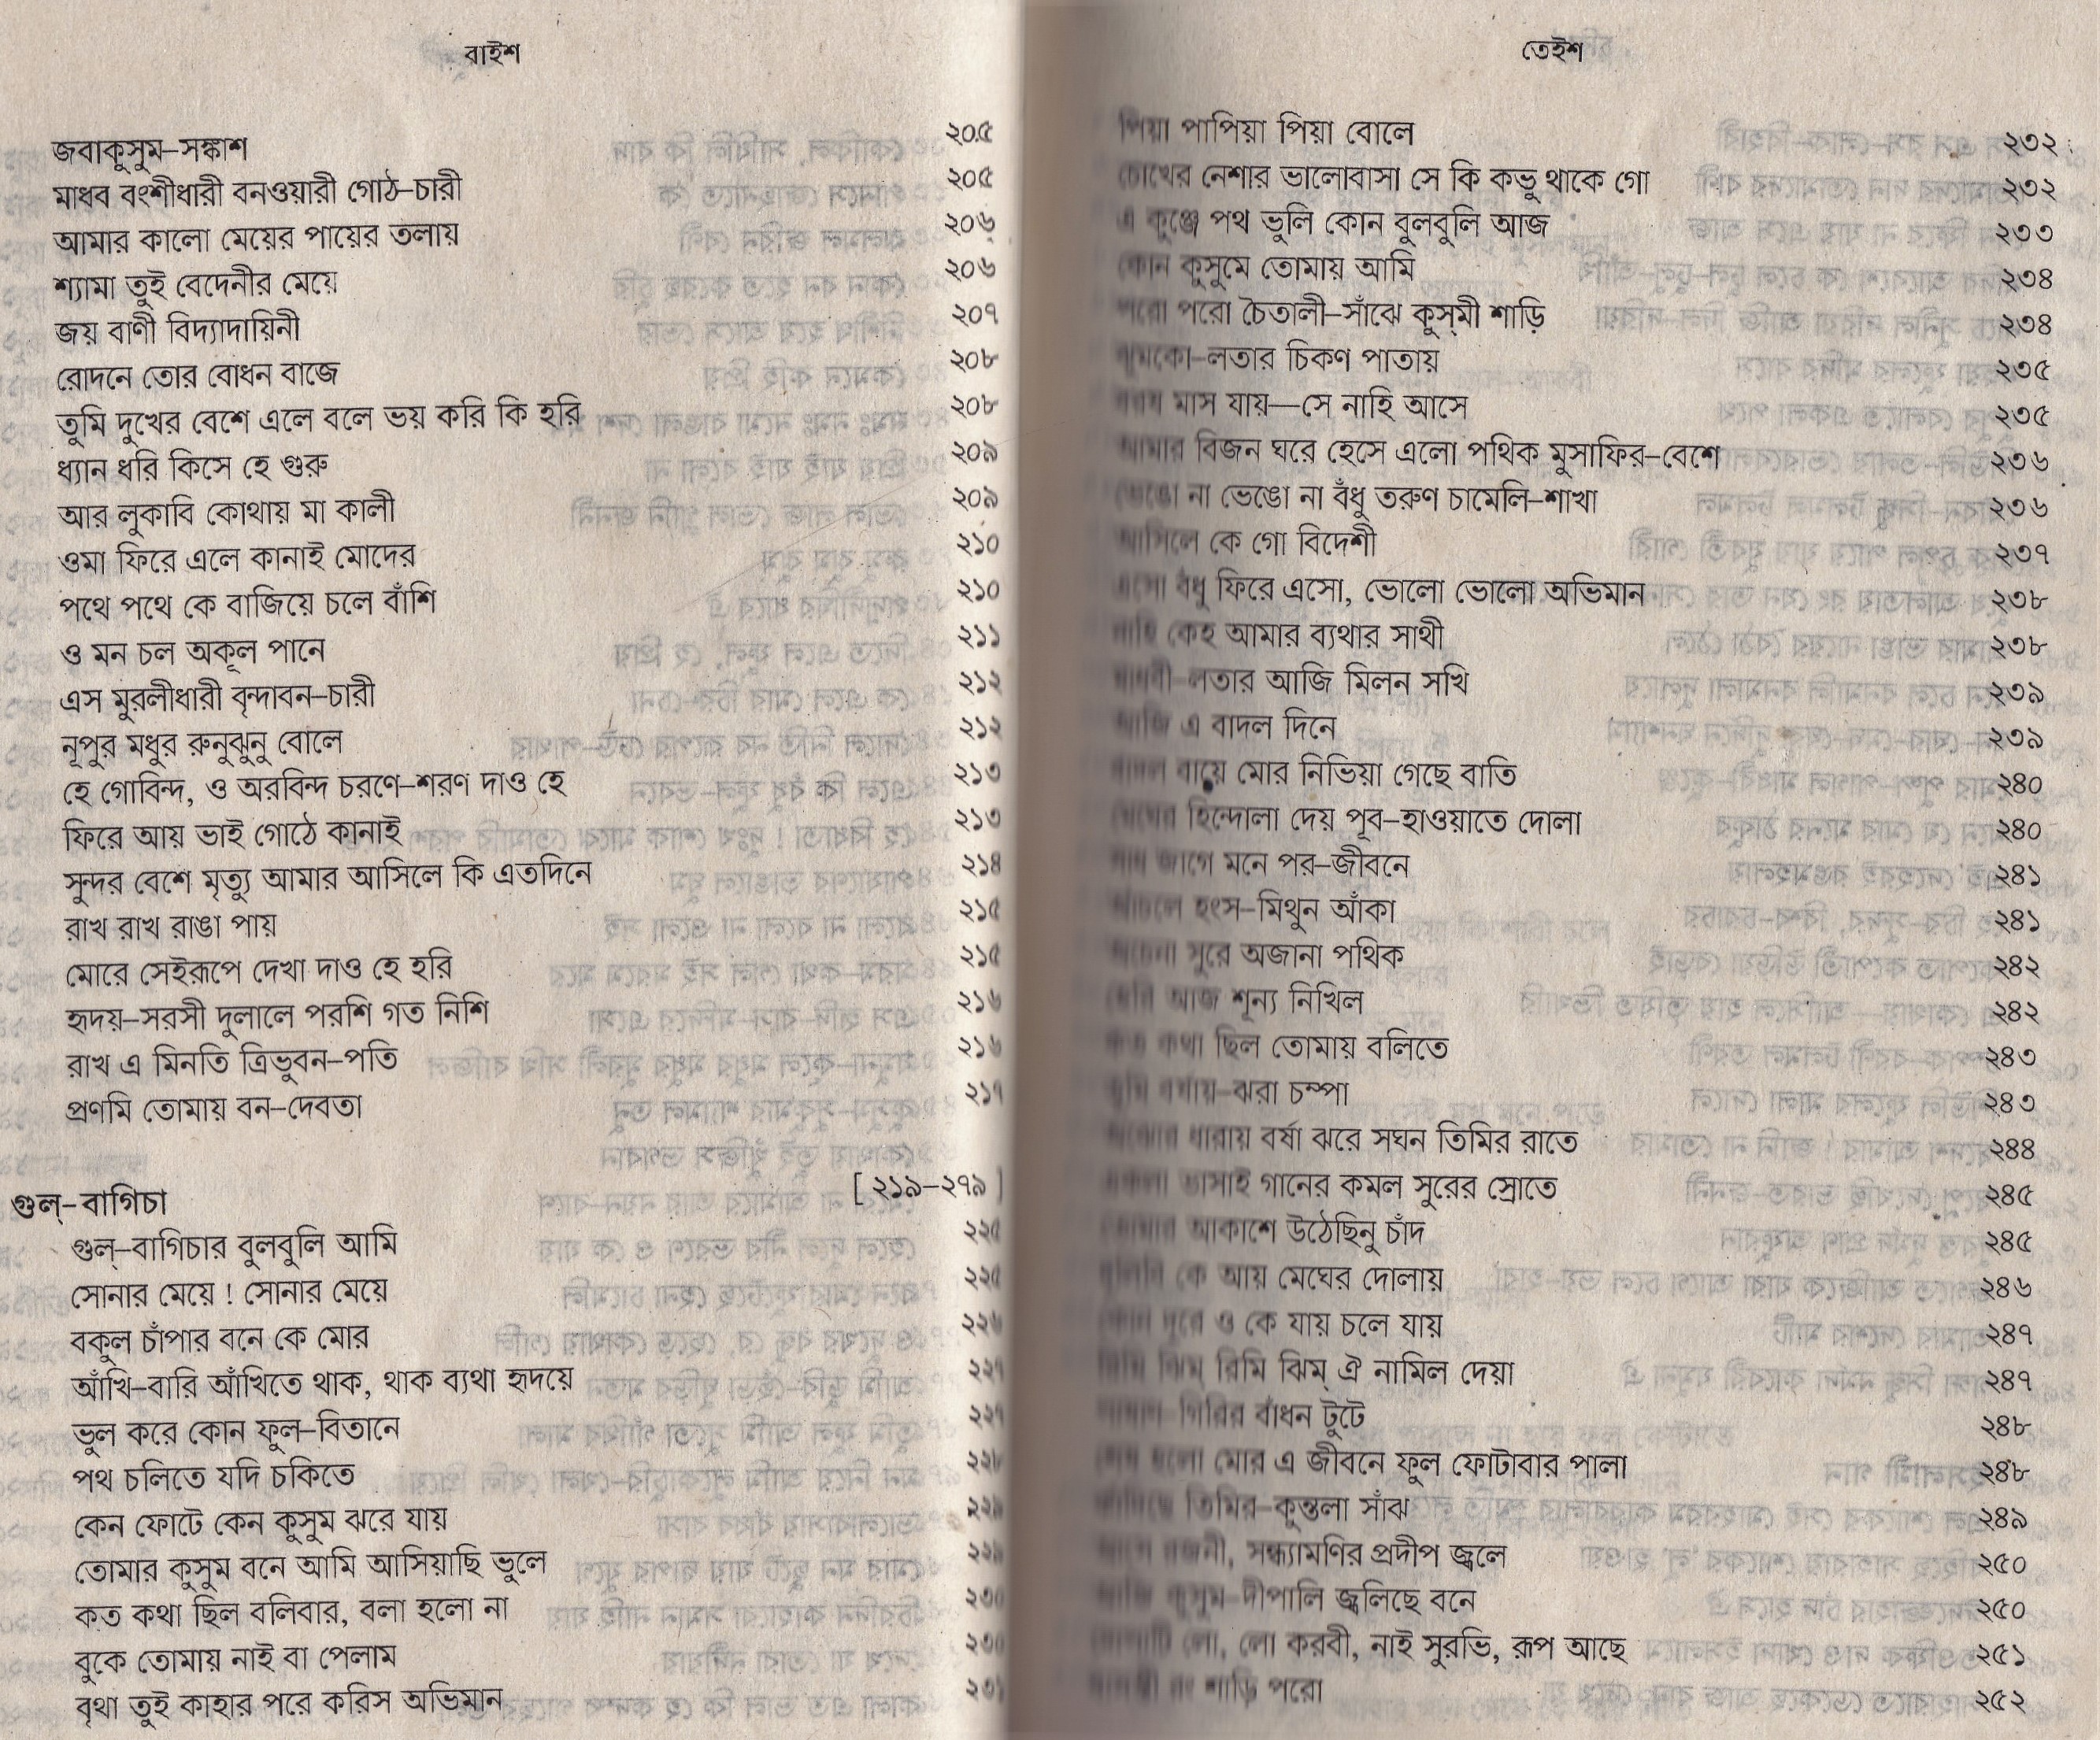 বাইশ
জবাকুসুম–সঙ্কাশ ২০৫
মাধব বংশীধারী বনওয়ারী গোঠ–চারী ২০৫
আমার কালো মেয়ের পায়ের তলায় ২০৬
শ্যামা তুই বেদেনীর মেয়ে ২০৬
জয় বাণী বিদ্যাদায়িনী ২০৭
রোদনে তোর বোধন বাজে ২০৮
তুমি দুখের বেশে এলে বলে ভয় করি কি হরি ২০৮
ধ্যান ধরি কিসে হে গুরু ২০৯
আর লুকাবি কোথায় মা কালী ২০৯
ওমা ফিরে এলে কানাই মোদের ২১০
পথে পথে কে বাজিয়ে চলে বাঁশি ২১০
ও মন চল অকূল পানে ২১১
এস মুরলীধারী বৃন্দাবন–চারী ২১২
নূপুর মধুর রুনুঝুনু বোলে ২১২
হে গোবিন্দ, ও অরবিন্দ চরণে–শরণ দাও হে ২১৩
ফিরে আয় ভাই গোঠে কানাই ২১৩
সুন্দর বেশে মৃত্যু আমার আসিলে কি এতদিনে ২১৪
রাখ রাখ রাঙা পায় ২১৫
মোরে সেইরূপে দেখা দাও হে হরি ২১৫
হৃদয়–সরসী দুলালে পরশি গত নিশি ২১৬
রাখ এ মিনতি ত্রিভুবন–পতি ২১৬
প্রণমি তোমায় বন–দেবতা ২১৭
গুল্–বাগিচা [ ২১৯–২৭৯ ]
গুল্–বাগিচার বুলবুলি আমি ২২৫
সোনার মেয়ে ! সোনার মেয়ে ২২৫
বকুল চাঁপার বনে কে মোর ২২৬
আঁখি–বারি আঁখিতে থাক, থাক ব্যথা হৃদয়ে ২২৭
ভুল করে কোন ফুল–বিতানে ২২৭
পথ চলিতে যদি চকিতে ২২৮
কেন ফোটে কেন কুসুম ঝরে যায় ২২৯
তোমার কুসুম বনে আমি আসিয়াছি ভুলে ২২৯
কত কথা ছিল বলিবার, বলা হলো না ২৩০
বুকে তোমায় নাই বা পেলাম ২৩০
বৃথা তুই কাহার পরে করিস অভিমান ২৩১
তেইশ
পিয়া পাপিয়া পিয়া বোলে ২৩২
চোখের নেশার ভালোবাসা সে কি কভু থাকে গো ২৩২
এ কুঞ্জে পথ ভুলি কোন বুলবুলি আজ ২৩৩
কোন কুসুমে তোমায় আমি ২৩৪
পরো পরো চৈতালী–সাঁঝে কুস্‌মী শাড়ি ২৩৪
ঝুমকো–লতার চিকণ পাতায় ২৩৫
বরষ মাস যায়—সে নাহি আসে ২৩৫
আমার বিজন ঘরে হেসে এলো পথিক মুসাফির–বেশে ২৩৬
ভেঙো না ভেঙো না বঁধু তরুণ চামেলি–শাখা ২৩৬
আসিলে কে গো বিদেশী ২৩৭
এসো বঁধু ফিরে এসো, ভোলো ভোলো অভিমান ২৩৮
নাহি কেহ আমার ব্যথার সাথী ২৩৮
মাধবী–লতার আজি মিলন সখি ২৩৯
আজি এ বাদল দিনে ২৩৯
বাদল বায়ে মোর নিভিয়া গেছে বাতি ২৪০
মেঘের হিন্দোলা দেয় পূব–হাওয়াতে দোলা ২৪০
সাধ জাগে মনে পর–জীবনে ২৪১
আঁচলে হংস–মিথুন আঁকা ২৪১
অচেনা সুরে অজানা পথিক ২৪২
হেরি আজ শূন্য নিখিল ২৪২
কত কথা ছিল তোমায় বলিতে ২৪৩
তুমি বর্ষায়–ঝরা চম্পা ২৪৩
অঝোর ধারায় বর্ষা ঝরে সঘন তিমির রাতে ২৪৪
একলা ভাসাই গানের কমল সুরের স্রোতে ২৪৫
তোমার আকাশে উঠেছিনু চাঁদ ২৪৫
দুলিবি কে আয় মেঘের দোলায় ২৪৬
কোন দূরে ও কে যায় চলে যায় ২৪৭
রিমি ঝিম্ রিমি ঝিম্ ঐ নামিল দেয়া ২৪৭
পাষাণ–গিরির বাঁধন টুটে ২৪৮
শেষ হলো মোর এ জীবনে ফুল ফোটাবার পালা ২৪৮
তিমির–কুন্তলা সাঁঝ ২৪৯
আসে রজনী, সন্ধ্যামণির প্রদীপ জ্বলে ২৫০
আজি কুসুম–দীপালি জ্বলিছে বনে ২৫০
দোপাটি লো, লো করবী, নাই সুরভি, রূপ আছে ২৫১
শাড়ি পরো ২৫২